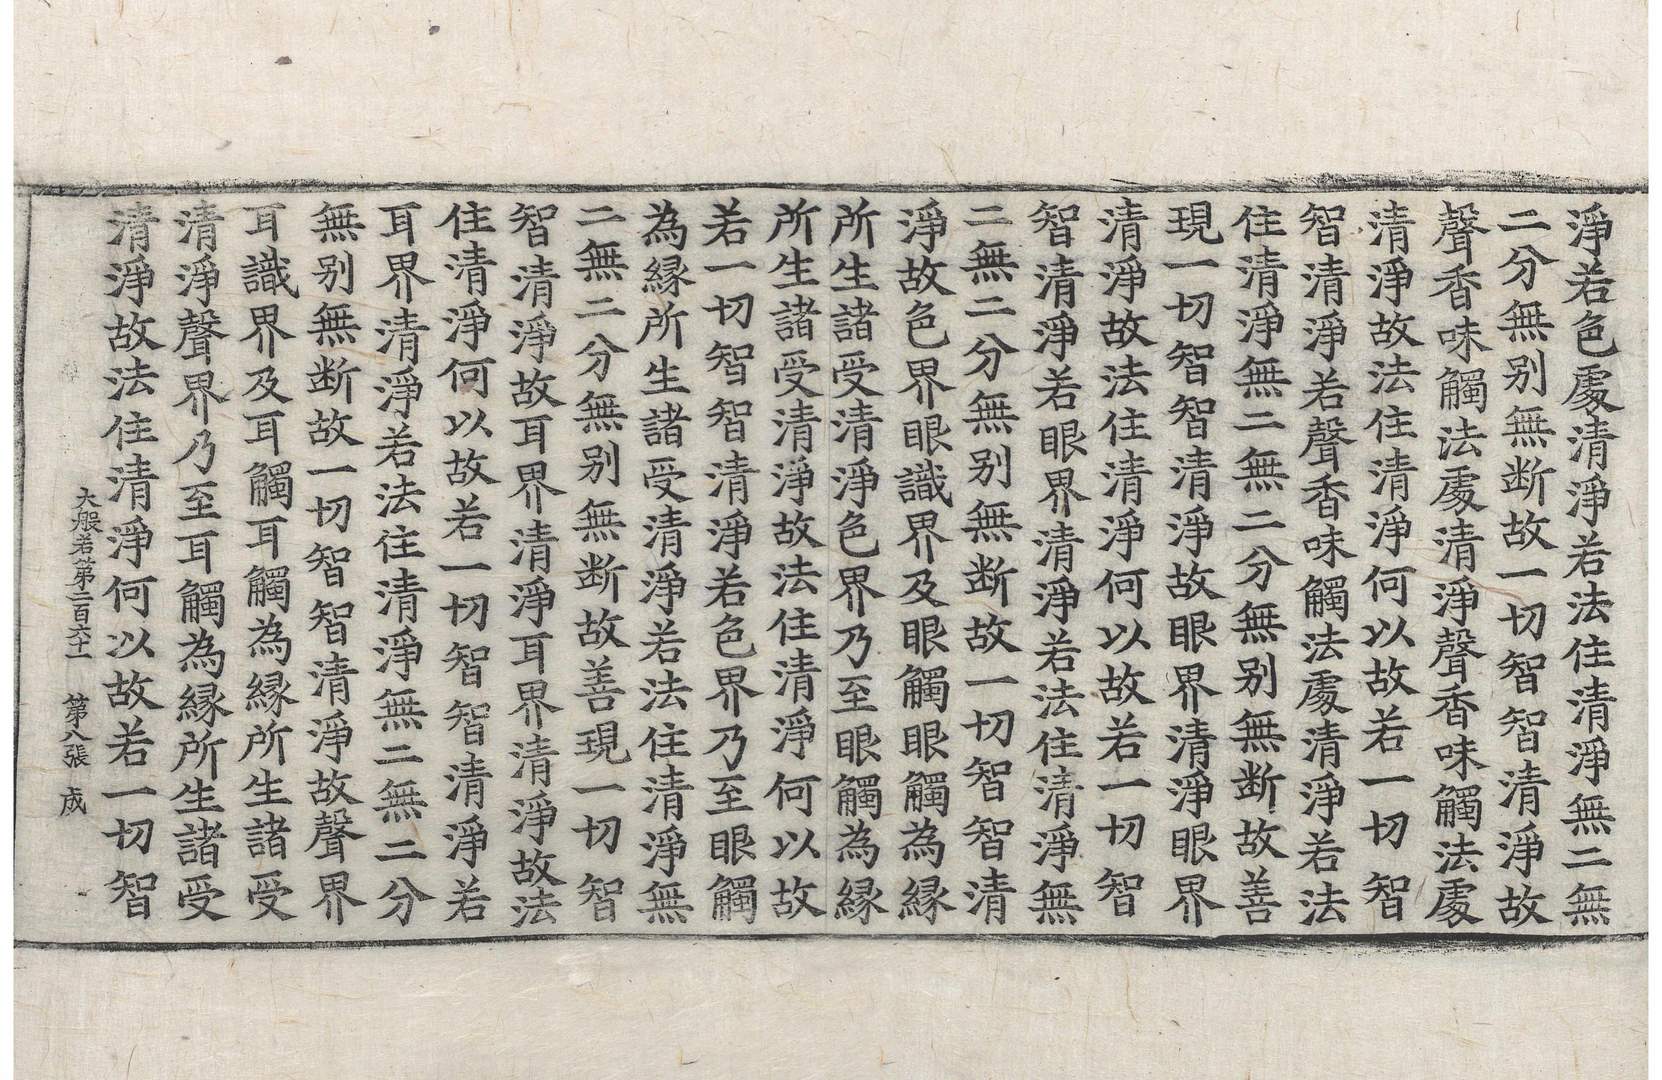 淨若色處清淨若法住清淨無二無
二分無别無断故一切智智清淨故
聲香味觸法處清淨聲香味觸法處
清淨故法住清淨何以故若一切智
智清淨若聲香味觸法處清淨若法
住清淨無二無二分無别無断故善
現一切智智清淨故眼界清淨眼界
清淨故法住清淨何以故若一切智
智清淨若眼界清淨若法住清淨無
二無二分無别無断故一切智智清
淨故色界眼識界及眼觸眼觸為縁
所生諸受清淨色界乃至眼觸為縁
所生諸受清淨故法住清淨何以故
若一切智智清淨若色界乃至眼觸
為縁所生諸受清淨若法住清淨無
二無二分無别無断故善現一切智
智清淨故耳界清淨耳界清淨故法
住清淨何以故若一切智智清淨若
耳界清淨若法住清淨無二無二分
無别無断故一切智智清淨故聲界
耳識界及耳觸耳觸為縁所生諸受
清淨聲界乃至耳觸為縁所生諸受
清淨故法住清淨何以故若一切智
大般若第二百六十一 第八張 成